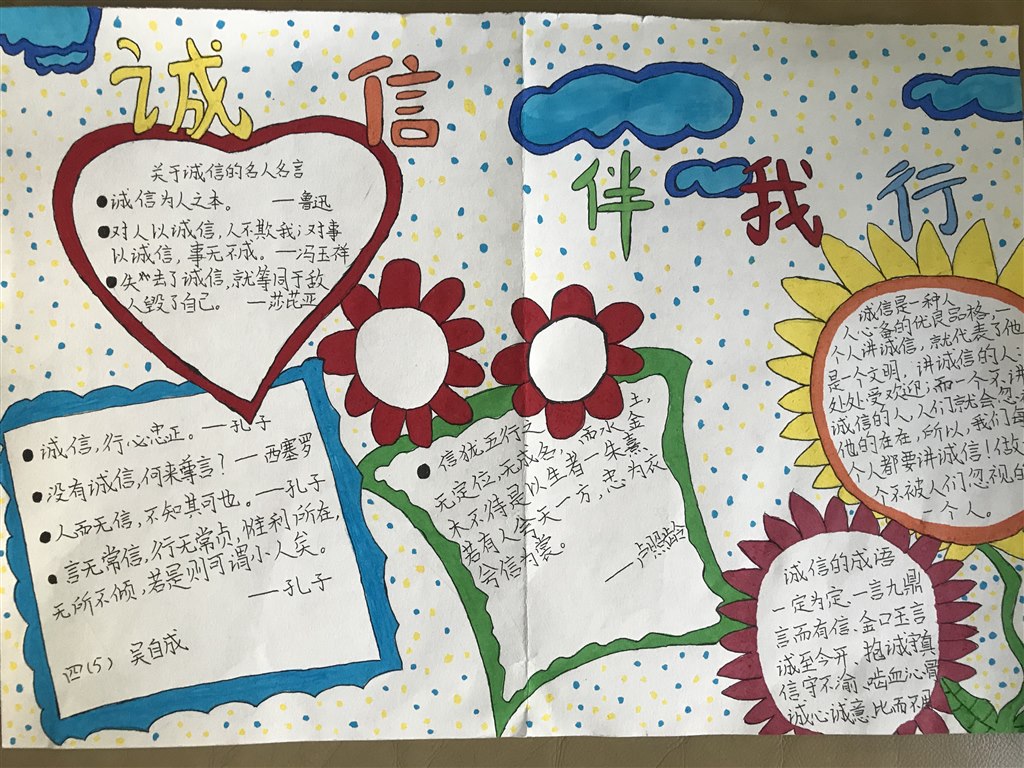 诚信
伴我行
关于诚信的名人名言
●诚信为人之本。 —鲁迅
●对人以诚信,人不欺我;对事
以诚信,事无不成。—冯玉祥
●失去了诚信,就等同于敌
人毁了自己。 —莎芘亚
●诚信,行必忠正。—孔子
●没有诚信,何来尊言?—西塞罗
●人而无信,不知其可也。—孔子
●言无常信,行无常贞,惟利所在,
无所不倾,若是则可谓小人矣。
—孔子
四(5) 吴自成
●信优五行之土,
无定位,无成名,而水金
木不待是以生者—朱熹
若有人兮天一方,忠为衣
兮信为裳。
—卢照龄
诚信是一种人
人必备的优良品格,一
个人讲诚信,就代表了他
是一个文明,讲诚信的人:
处处受欢迎;而一个不讲
诚信的人,人们就会忽
他的在在,所以,我们每
个人都要讲诚信!做
个不被人们忽视的
一个人。
诚信的成语
一定为定、一言九鼎
言而有信、金口玉言
诚至今开、抱诚守真
信守不渝、啮血沁骨
诚心诚意、比而不周